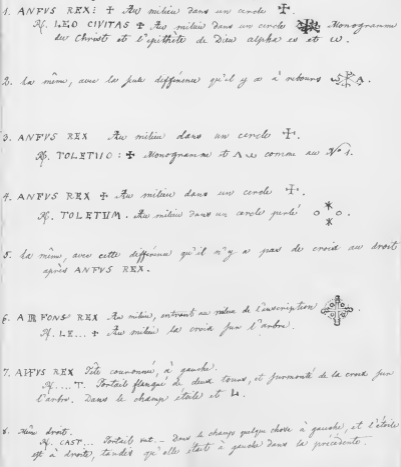 1. ANFVS REX: ✝ Au milieu dans un cercle ✝.
℟. LEO CIVITAS ✝ Au milieu dans un cercle Monogramme
du Christ et l'épithète de Dieu alpha et ω.
2. la même, avec la différence qu'il y a à retours
3. ANFVS REX Au milieu dans un cercle ✝.
℟. TOLETUO: ✝ Monogramme et comme au No 1.
4. ANFVS REX ✝ Au milieu dans un cercle ✝.
℟. TOLETUM. Au milieu dans un cercle perlé o * * o.
5. la même, avec cette différence qu'il n'y a pas de croix au droit
après ANFVS REX.
6. FONS REX Au milieu, entrant au de l'inscription
℟. LE... ✝ Au milieu la croix sur l'arbre.
7. REX Tête couronnée, à gauche.
℟. .... T. Portail flanqué de deux tours, et surmonté de la croix sur
l'arbre. Dans le champ étoile et L.
8. Même droit.
℟. CAST... Portail – Dans le champ quelque chose à gauche, et l'étoile
est à droite, tandis qu'elle était à gauche dans la précédente.